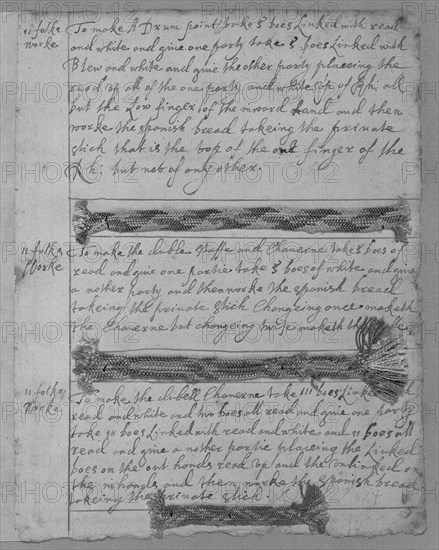 11 folks To make A Drum point take 5 boes Linked with read
worke and white and giue one party take 5 boes Linked with
Blew and white and giue the other party placeing the
read up all of the one party and white up of Rh: all
but the Low finger of the inword hand and then
worke the spanish bread takeing the priuate
stich that is the top of the one finger of the
Rh: but not of any other.
11 folks To make the duble Staffe and Chauerne take 5 boes of
worke read and giue one partie take 5 boes of white and giue
a nother party and then worke the spanish bread
takeing the priuate stich Changeing once maketh
the Chauerne but changeing twise maketh the
11 folks To make the dubell Chauerne take 111 boes Linked
worke read and white and two boes all read and giue one party
take 111 boes Linked with read and white and 11 boes all
read and giue a nother partie placeing the Linked
boes on the out hands read up and the unlinked on
the in hands and then worke the spanish bread
takeing the priuate stich.